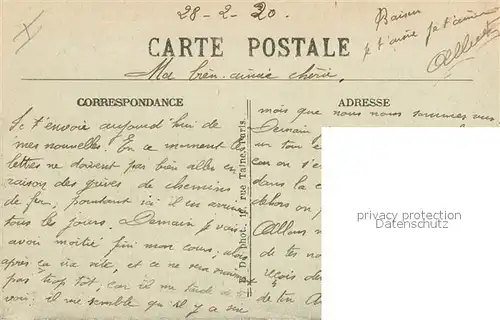 28-2-20.
Baiser
je t'aime je t'aime
Albert
CARTE POSTALE
Ma bien-aimée chérie,
CORRESPONDANCE
Je t'envoie aujourd'hui de
mes nouvelles. En ce moment les
lettres ne doivent pas bien aller en
raison des grèves de chemins
de fer, pourtant ici il en arrive
tous les jours. Demain je vais
avoir moitié fini mon cours, alors
après ça ira vite, et ce ne sera vraiment
pas trop tôt, car il me tarde de te
voir; il me semble qu'il y a une
phot., rue Taine, Paris.
ADRESSE
mois que nous nous sommes vus.
Demain
un tou
car on s'e
dans la c
dehors on p
Allons
de tes no
reçois de
de ton A
privacy protection
Datenschutz